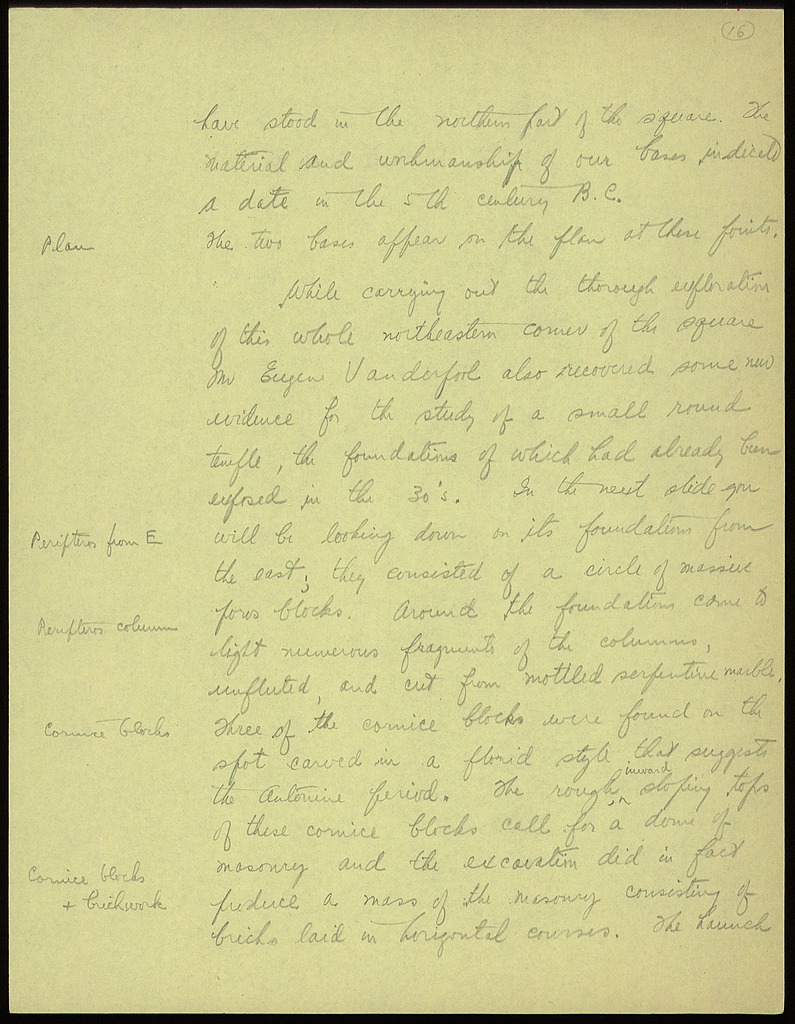 16
have stood in the northern part of the square. The
material and workmanship of our bases indicate
a date in the 5th century B.C.
Plan
The two bases appear on the plan at these points.
While carrying out the thorough exploration
of this whole northeastern corner of the square
Mr Eugene Vanderpool also recovered some new
evidence for the study of a small round
temple, the foundations of which had already been
exposed in the 30's. In the next slide you
Peripteros from E
will be looking down on its foundations from
the east; they consisted of a circle of massive
poros blocks. Around the foundations came to
Peripteros column
light numerous fragments of the columns,
unfluted, and cut from mottled serpentine marble.
Cornice blocks
Three of the cornice blocks were found on the
spot carved in a florid style that suggests
the Antonine period. The rough, inward sloping tops
of these cornice blocks call for a dome of
Cornice blocks
masonry and the excavation did in fact
+ brickwork
produce a mass of the masonry consisting of
bricks laid in horizontal courses. The haunch